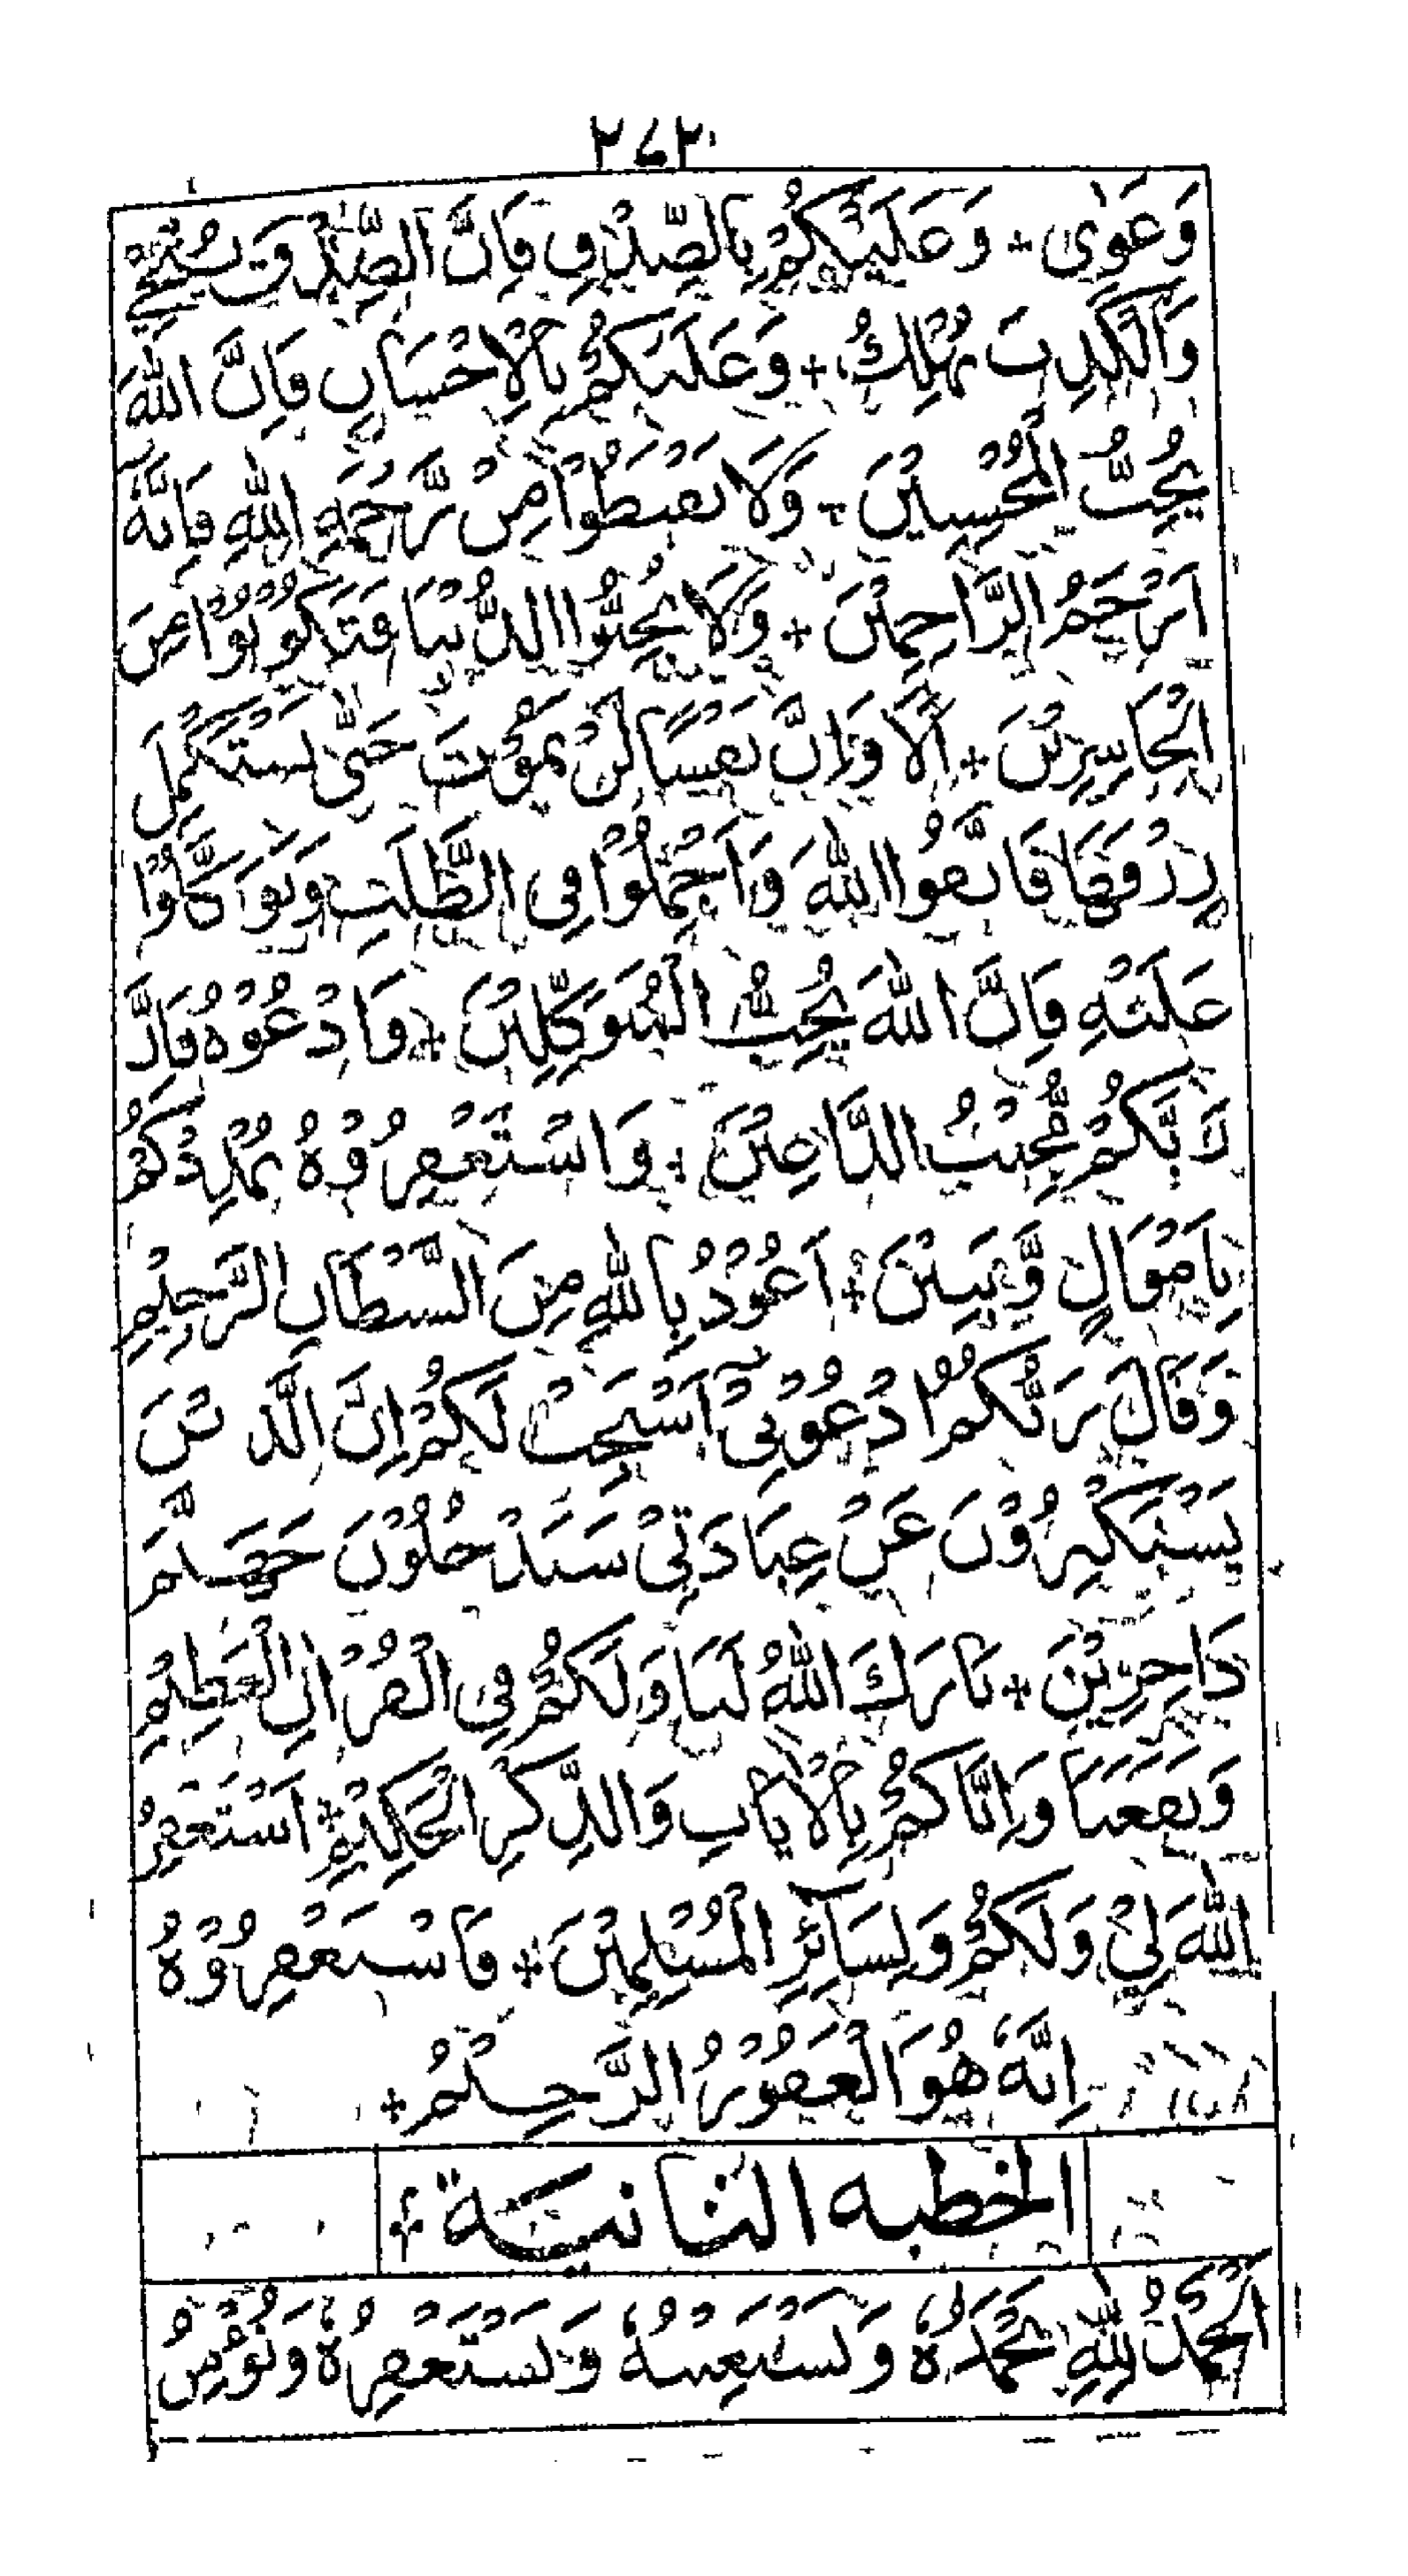 ٢٧٣
وَغَوٰى + وَعَلَيْكُمْ بِالصِّدْقِ فَاِنَّ الصِّدْقَ يُنْجِيْ
وَالْكَذِبَ يُهْلِكُ + وَعَلَيْكُمْ بِالْاِحْسَانِ فَاِنَّ اللّٰهَ
يُحِبُّ الْمُحْسِنِيْنَ + وَلَا تَقْنَطُوْا مِنْ رَّحْمَةِ اللّٰهِ فَاِنَّهٗ
اَرْحَمُ الرَّاحِمِيْنَ + وَلَا تُحِبُّوا الدُّنْيَا فَتَكُوْنُوْا مِنَ
الْخَاسِرِيْنَ + اَلَا وَاِنَّ نَفْسًا لَنْ تَمُوْتَ حَتّٰى تَسْتَكْمِلَ
رِزْقَهَا فَاتَّقُوا اللّٰهَ وَاَجْمِلُوْا فِى الطَّلَبِ وَتَوَكَّلُوْا
عَلَيْهِ فَاِنَّ اللّٰهَ يُحِبُّ الْمُتَوَكِّلِيْنَ + فَادْعُوْهُ فَاِنَّ
رَبَّكُمْ مُّجِيْبُ الدَّاعِيْنَ + وَاسْتَغْفِرُوْهُ يُمْدِدْكُمْ
بِاَمْوَالٍ وَّبَنِيْنَ + اَعُوْذُ بِاللّٰهِ مِنَ الشَّيْطَانِ الرَّجِيْمِ
وَقَالَ رَبُّكُمُ ادْعُوْنِىْ اَسْتَجِبْ لَكُمْ اِنَّ الَّذِيْنَ
يَسْتَكْبِرُوْنَ عَنْ عِبَادَتِىْ سَيَدْخُلُوْنَ جَهَنَّمَ
دَاخِرِيْنَ + بَارَكَ اللّٰهُ لَنَا وَلَكُمْ فِى الْقُرْاٰنِ الْعَظِيْمِ
وَنَفَعَنَا وَاِيَّاكُمْ بِالْاٰيَاتِ وَالذِّكْرِ الْحَكِيْمِ + اَسْتَغْفِرُ
اللّٰهَ لِىْ وَلَكُمْ وَلِسَآئِرِ الْمُسْلِمِيْنَ + فَاسْتَغْفِرُوْهُ
اِنَّهٗ هُوَ الْغَفُوْرُ الرَّحِيْمُ +
الخطبة الثانية +
اَلْحَمْدُ لِلّٰهِ نَحْمَدُهٗ وَنَسْتَعِيْنُهٗ وَنَسْتَغْفِرُهٗ وَنُؤْمِنُ